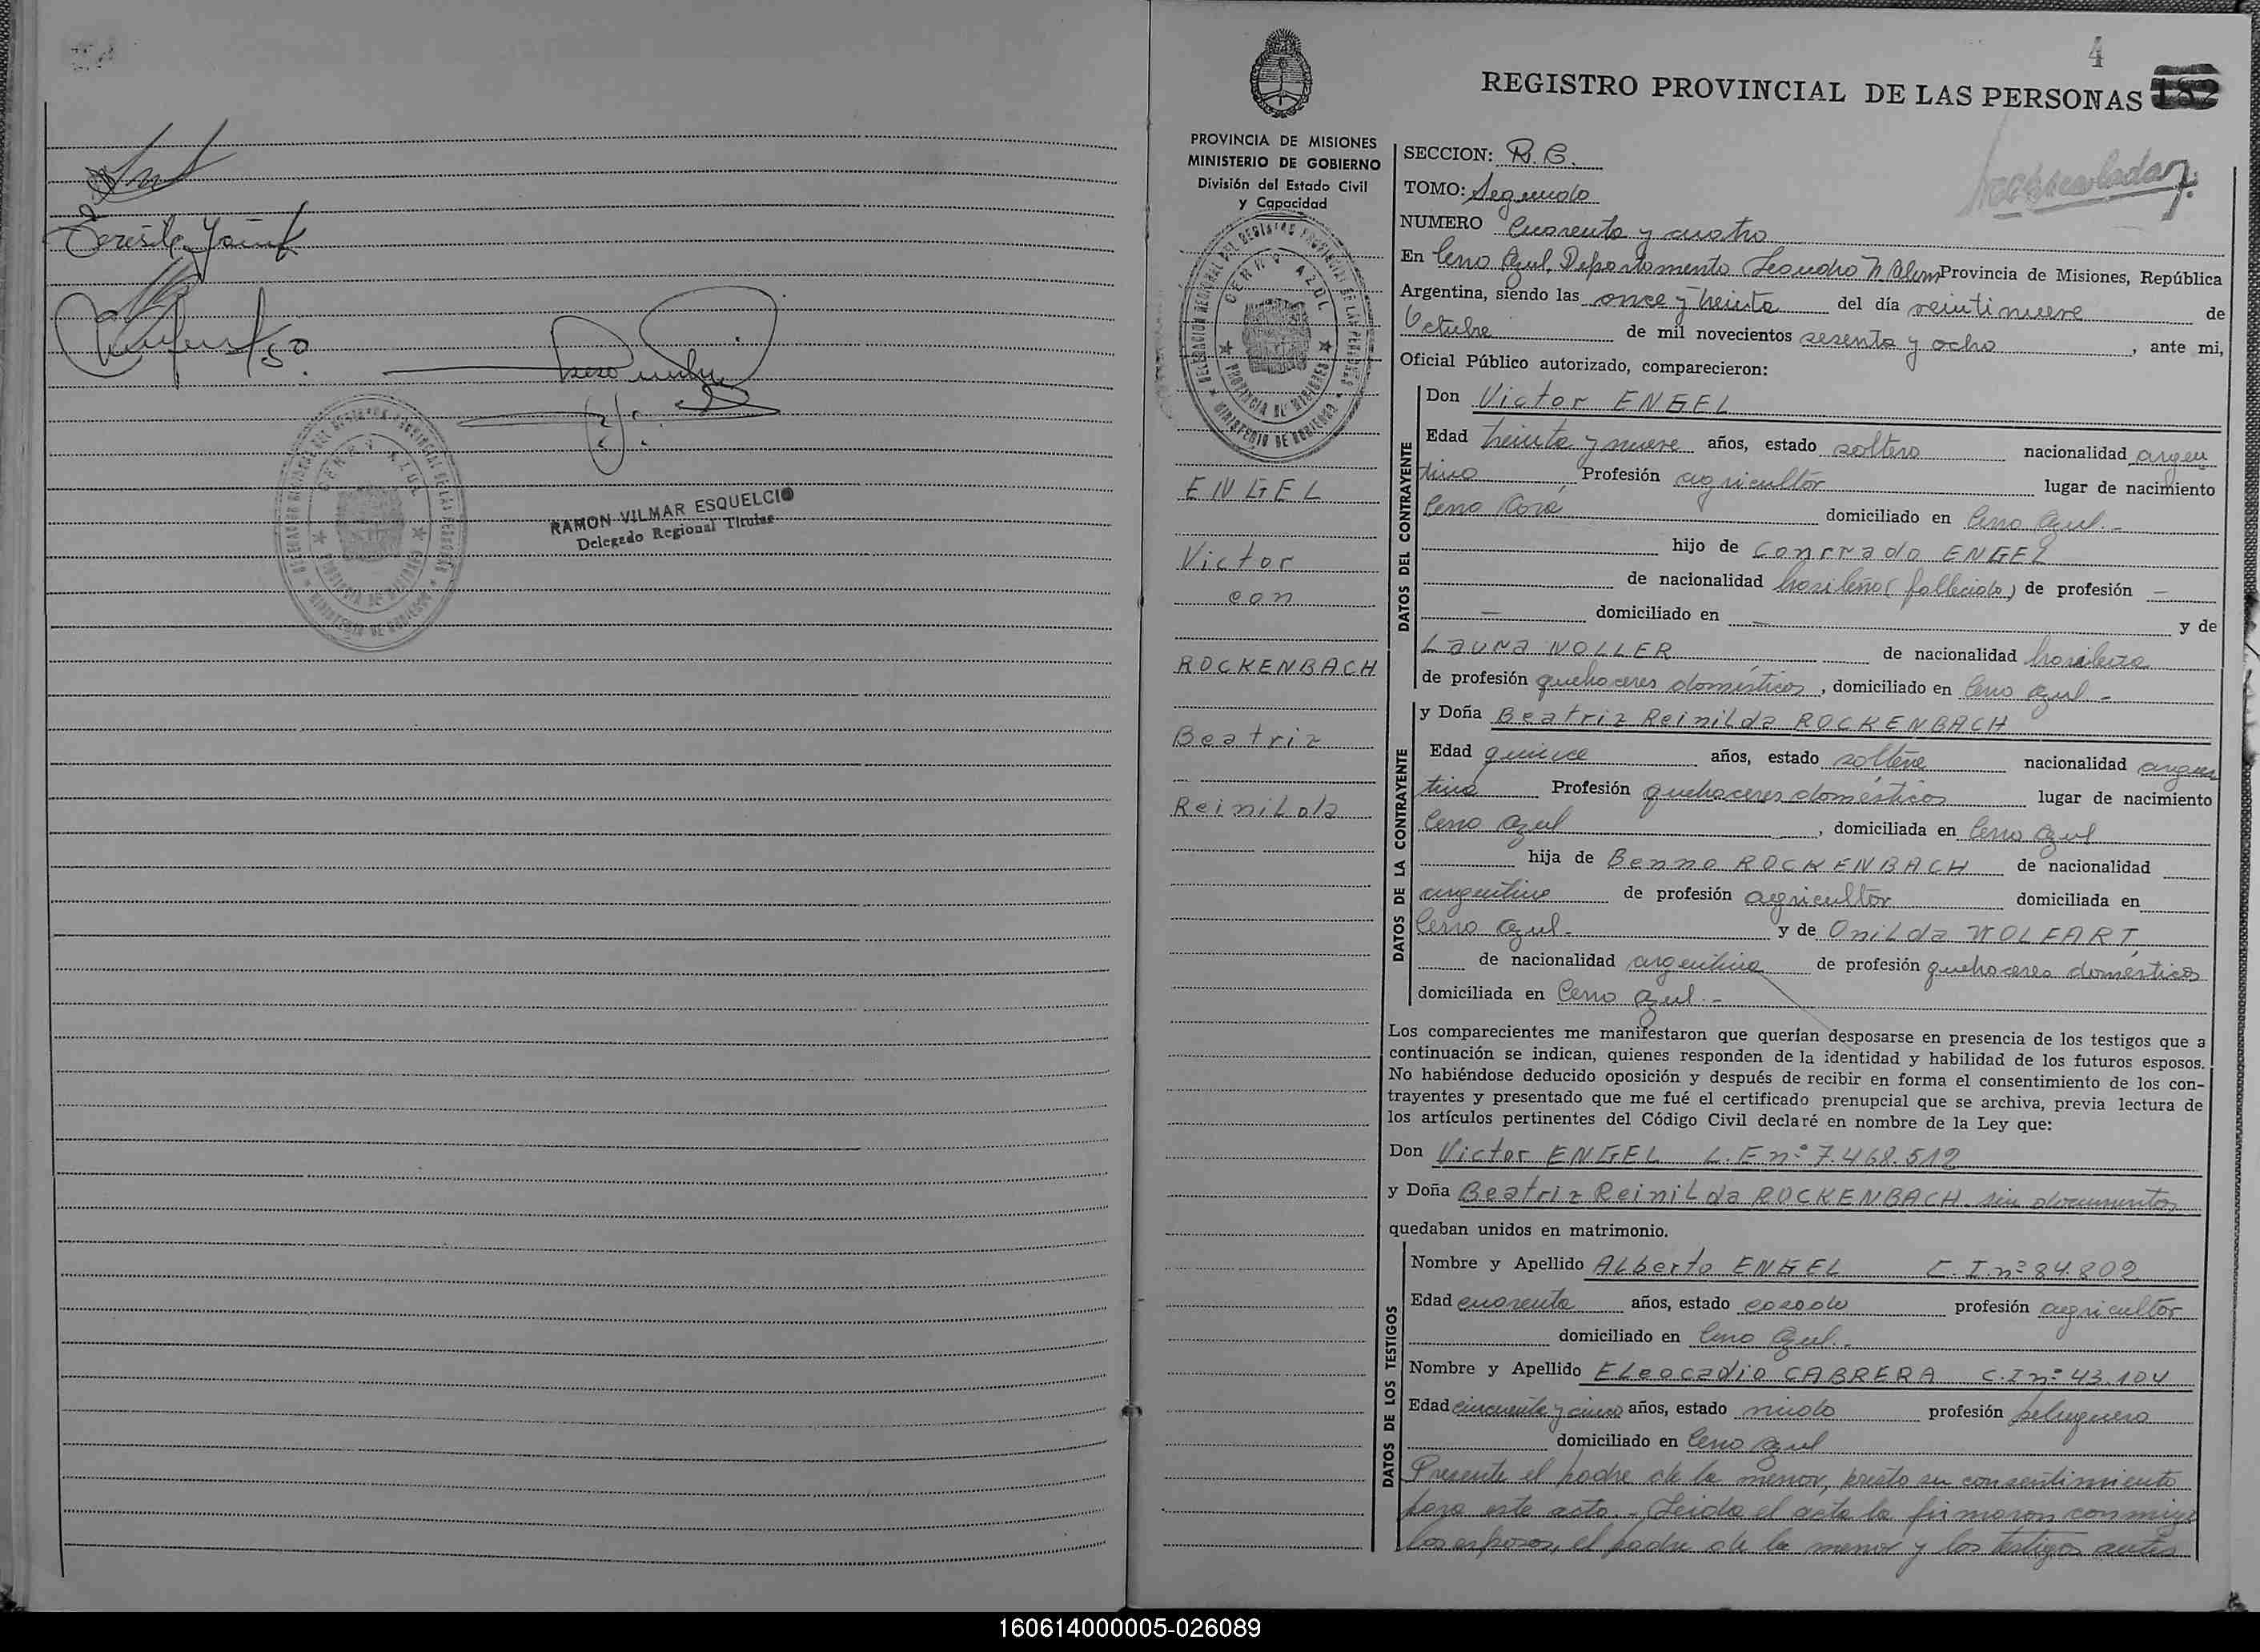 Teresita
RAMON VILMAR ESQUELCIO
Delegado Regional Titular
4
REGISTRO PROVINCIAL DE LAS PERSONAS 182
PROVINCIA DE MISIONES
MINISTERIO DE GOBIERNO
División del Estado Civil
y Capacidad
CERRO AZUL
PROVINCIA DE MISIONES
MINISTERIO DE GOBIERNO
ENGEL
Victor
con
ROCKENBACH
Beatriz
Reinilda
SECCION: R. C.
TOMO: Segundo
NUMERO Cuarenta y cuatro
En Cerro Azul, Departamento Leandro N. Alem Provincia de Misiones, República
Argentina, siendo las once y treinta del día veintinueve de
Octubre de mil novecientos sesenta y ocho, ante mi,
Oficial Público autorizado, comparecieron:
DATOS DEL CONTRAYENTE
Don Victor ENGEL
Edad treinta y nueve años, estado soltero nacionalidad argen
tino Profesión agricultor lugar de nacimiento
Cerro Corá domiciliado en Cerro Azul.-
hijo de Conrrado ENGEL
de nacionalidad brasileño (fallecido) de profesión —
— domiciliado en — y de
Laura NOLLER de nacionalidad brasileña
de profesión quehaceres domésticos, domiciliado en Cerro Azul -
DATOS DE LA CONTRAYENTE
y Doña Beatriz Reinilda ROCKENBACH
Edad quince años, estado soltera nacionalidad argen
tina Profesión quehaceres domésticos lugar de nacimiento
Cerro Azul, domiciliada en Cerro Azul
hija de Benno ROCKENBACH de nacionalidad
argentino de profesión agricultor domiciliada en
Cerro Azul.- y de Onilda WOLFART,
de nacionalidad argentina de profesión quehaceres domésticos
domiciliada en Cerro Azul.-
Los comparecientes me manifestaron que querían desposarse en presencia de los testigos que a
continuación se indican, quienes responden de la identidad y habilidad de los futuros esposos.
No habiéndose deducido oposición y después de recibir en forma el consentimiento de los con-
trayentes y presentado que me fué el certificado prenupcial que se archiva, previa lectura de
los artículos pertinentes del Código Civil declaré en nombre de la Ley que:
Don Victor ENGEL L.E nº 7.468.512
y Doña Beatriz Reinilda ROCKENBACH sin documentos
quedaban unidos en matrimonio.
DATOS DE LOS TESTIGOS
Nombre y Apellido Alberto ENGEL C.I.nº 84.802
Edad cuarenta años, estado casado profesión agricultor
domiciliado en Cerro Azul.-
Nombre y Apellido Eleocadio CABRERA C.I nº 43.104
Edad cincuenta y cinco años, estado viudo profesión peluquero
domiciliado en Cerro Azul
Presente el padre de la menor, presto su consentimiento
para este acto.- Leida el acta la firmaron conmigo
los esposos, el padre de la menor y los testigos antes
160614000005-026089